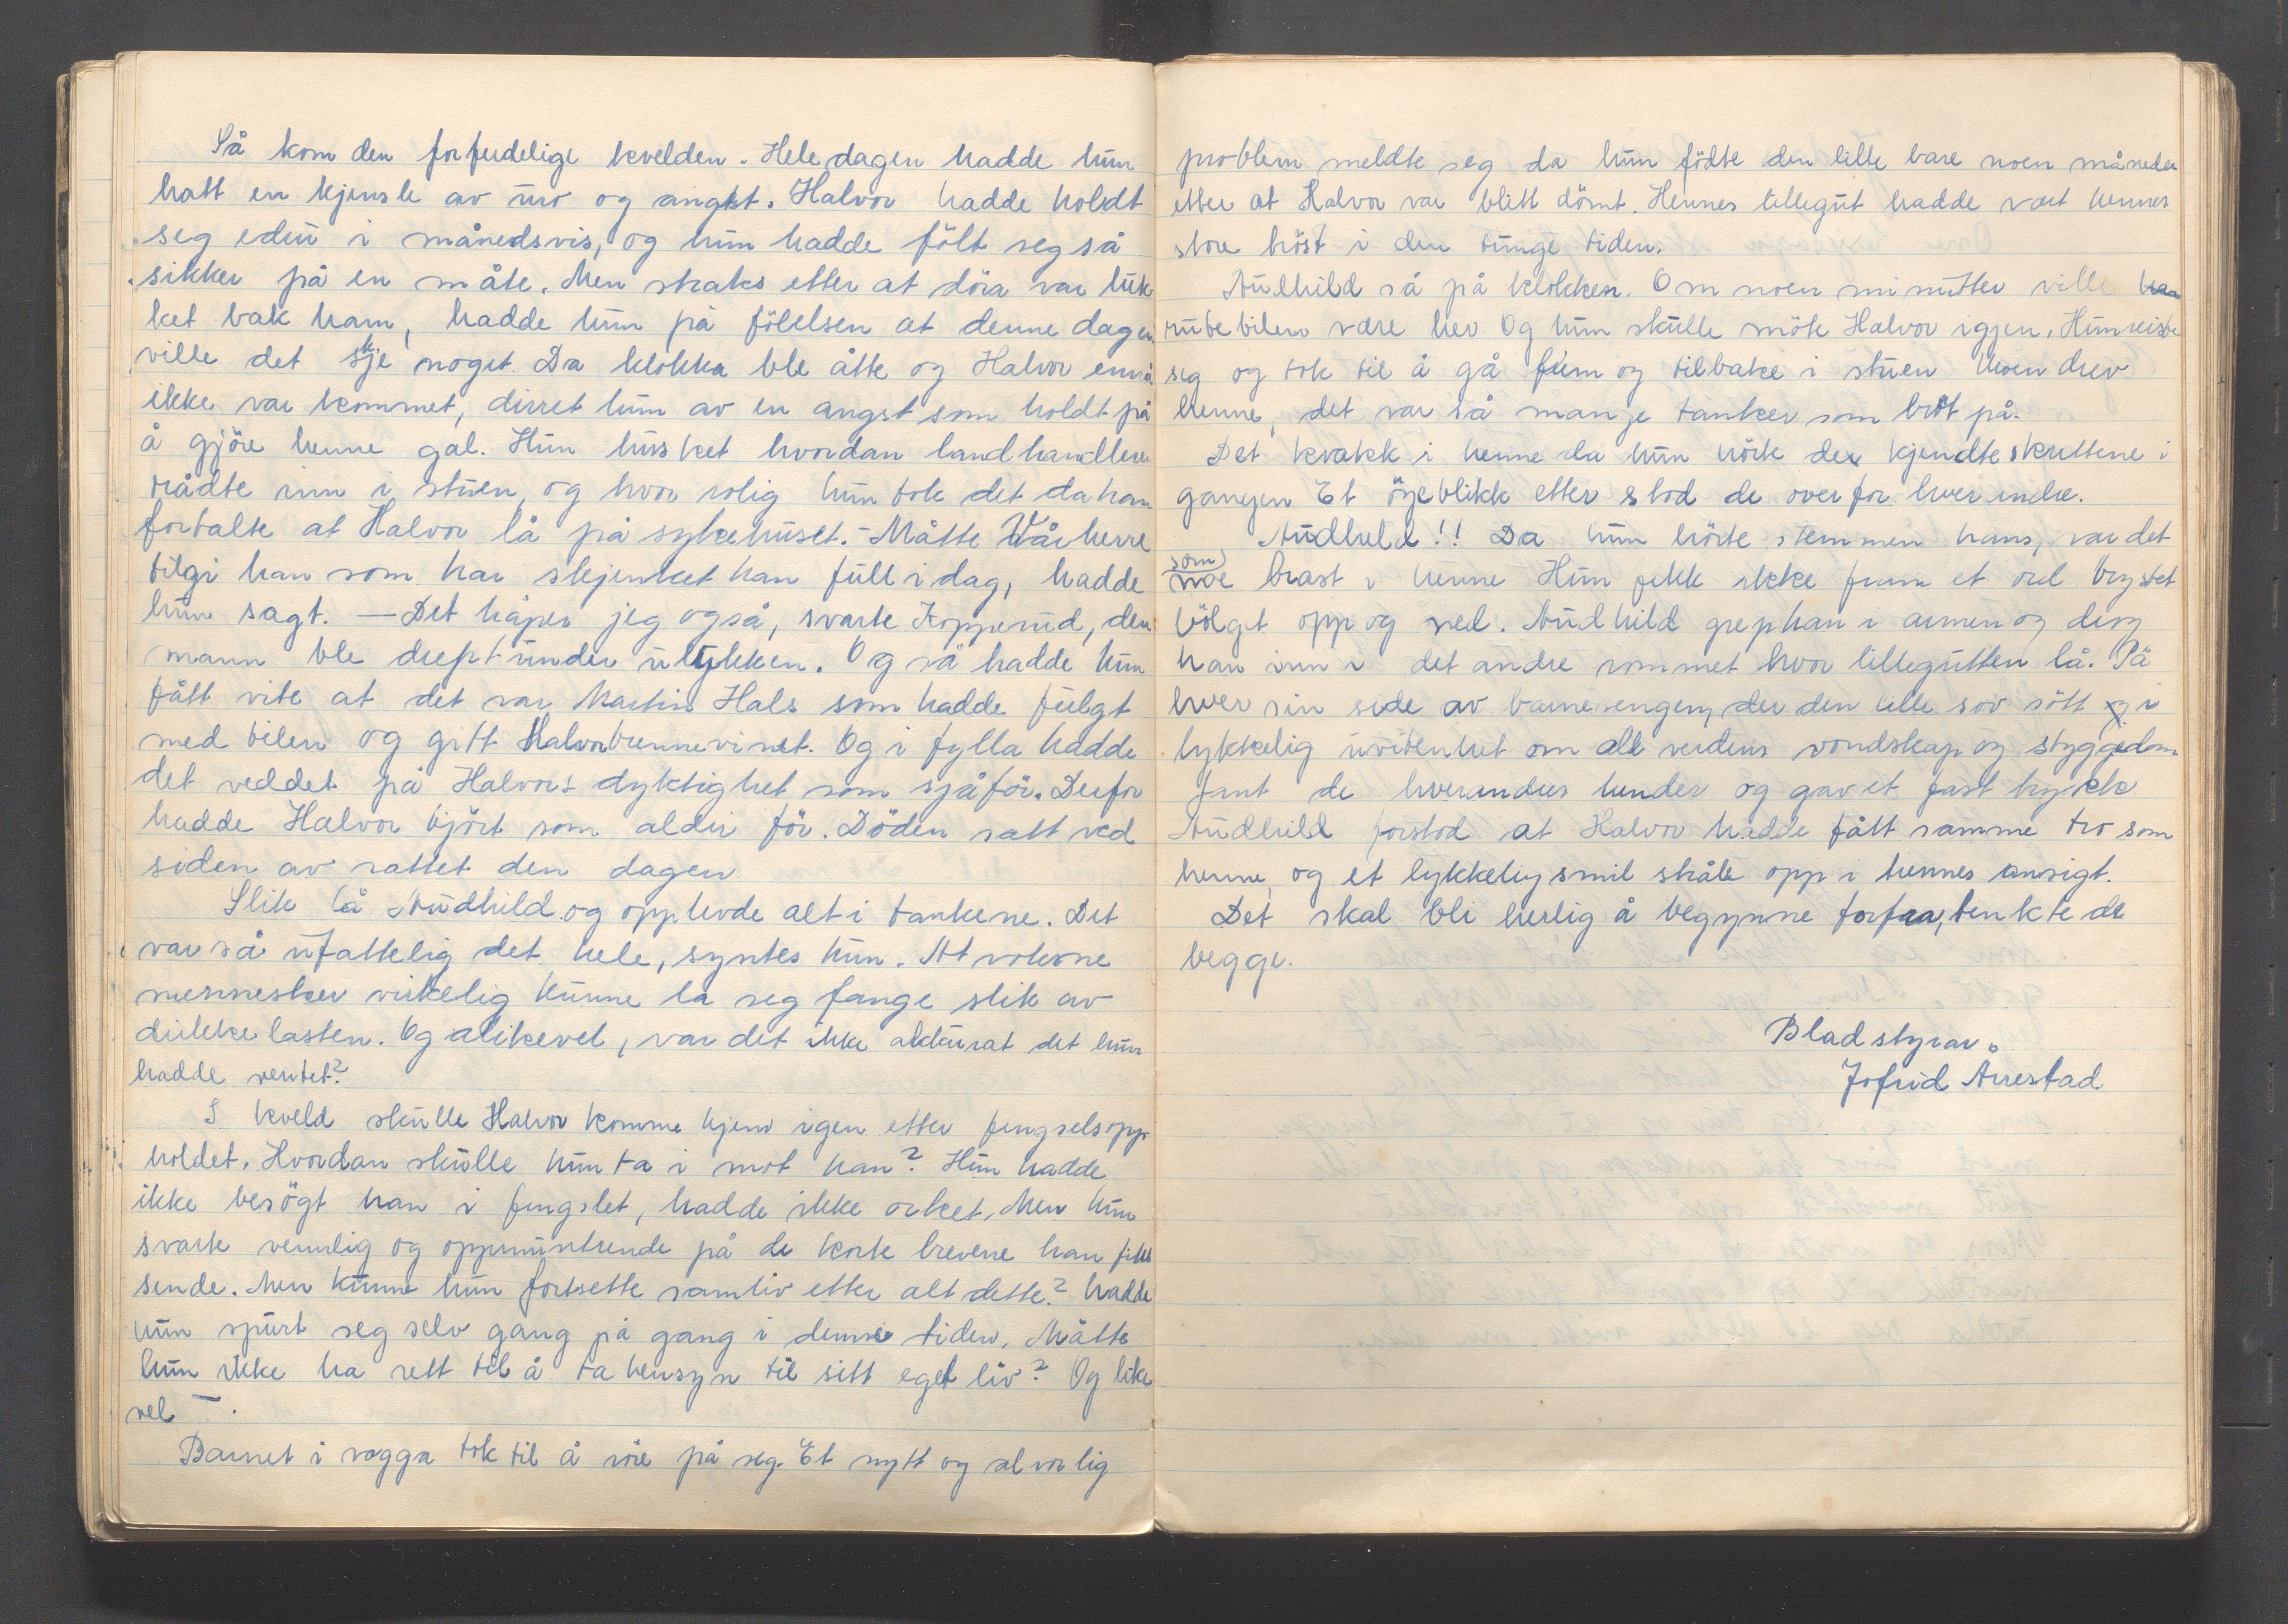 Så kom den forferdelige kvelden. Hele dagen hadde hun
hatt en kjensle av uro og angst. Halvor hadde holdt
seg edru i månedsvis, og hun hadde fölt seg så
sikker på en måte. Men straks etter at döra var luk
ket bak ham, hadde hun på fölelsen at denne dagen
ville det skje noget. Da klokka ble åtte og Halvor ennå
ikke var kommet, dirret hun av en angst som holdt på
å gjöre henne gal. Hun husket hvordan landhandleren
trådte inn i stuen, og hvor rolig hun tok det da han
fortalte at Halvor lå på sykehuset. - Måtte Vårherre
tilgi han som har skjenket han full i dag, hadde
hun sagt. — Det håper jeg også, svarte Kopperud, den
mann ble drept under ulykken. Og så hadde hun
fått vite at det var Martin Hals som hadde fulgt
med bilen og gitt Halvor brennevinet. Og i fylla hadde
det veddet på Halvors dyktighet som sjåför. Derfor
hadde Halvor kjört som aldri för. Döden satt ved
siden av rattet den dagen.
Slik lå Audhild og opplevde alt i tankene. Det
var så ufattelig det hele, syntes hun. At voksne
mennesker virkelig kunne la seg fange slik av
drikkelasten. Og allikevel, var det ikke akkurat det hun
hadde ventet?
I kveld skulle Halvor komme hjem igen etter fengselsopp-
holdet. Hvordan skulle hun ta i mot han? Hun hadde
ikke besögt han i fengslet, hadde ikke orket. Men hun
svarte vennlig og oppmuntrende på de korte brevene han fikk
sende. Men kunne hun fortsette samliv etter alt dette? hadde
hun spurt seg selv gang på gang i denne tiden. Måtte
hun ikke ha rett til å ta hensyn til sitt eget liv? Og like
vel —.
Barnet i vogga tok til å röre på seg. Et nytt og alvorlig
problem meldte seg da hun födte den lille bare noen måneder
etter at Halvor var blitt dömt. Hennes lillegut hadde vært hennes
store tröst i den tunge tiden.
Audhild så på klokken. Om noen minutter ville
rutebilen være her. Og hun skulle möte Halvor igjen. Hun reiste
seg og tok til å gå frem og tilbake i stuen. Uroen drev
henne, det var så mange tanker som bröt på.
Det kvakk i henne da hun hörte de kjendte skrittene i
gangen. Et öyeblikk etter stod de overfor hverandre.
Audhild!! Da hun hörte stemmen hans, var det
som noe brast i henne. Hun fikk ikke frem et ord brystet
bölget opp og ned. Audhild grep han i armen og drog
han inn i det andre rommet hvor lillegutten lå. På
hver sin side av barnesengen, der den lille sov sött i
lykkelig uvitenhet om all verdens vondskap og styggedom
fant de hverandres hender og gav et fast trykk
Audhild forstod at Halvor hadde fått samme tro som
henne, og et lykkelig smil stråle opp i hennes ansigt.
Det skal bli herlig å begynne forfra, tenkte de
begge.
Bladstyrar.
Jofrid Årrestad